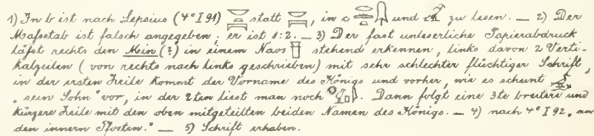 1) In b ist nach Lepsius (4° I 91) statt , in c und zu lesen. — 2) Der
Maßstab ist falsch angegeben; er ist 1:2. — 3) Der fast unleserliche Papierabdruck
läßt rechts den Min (?) in einem Naos stehend erkennen, links davon 2 Verti-
kalzeilen (von rechts nach links geschrieben) mit sehr schlechter flüchtiger Schrift,
in der ersten Zeile kommt der Vorname des Königs und vorher, wie es scheint
„sein Sohn" vor, in der 2ten liest man noch . Dann folgt eine 3te breitere und
kürzere Zeile mit den oben mitgeteilten beiden Namen des Königs. — 4) nach 4° I 92, an
den innern Pfosten." — 5) Schrift erhaben.